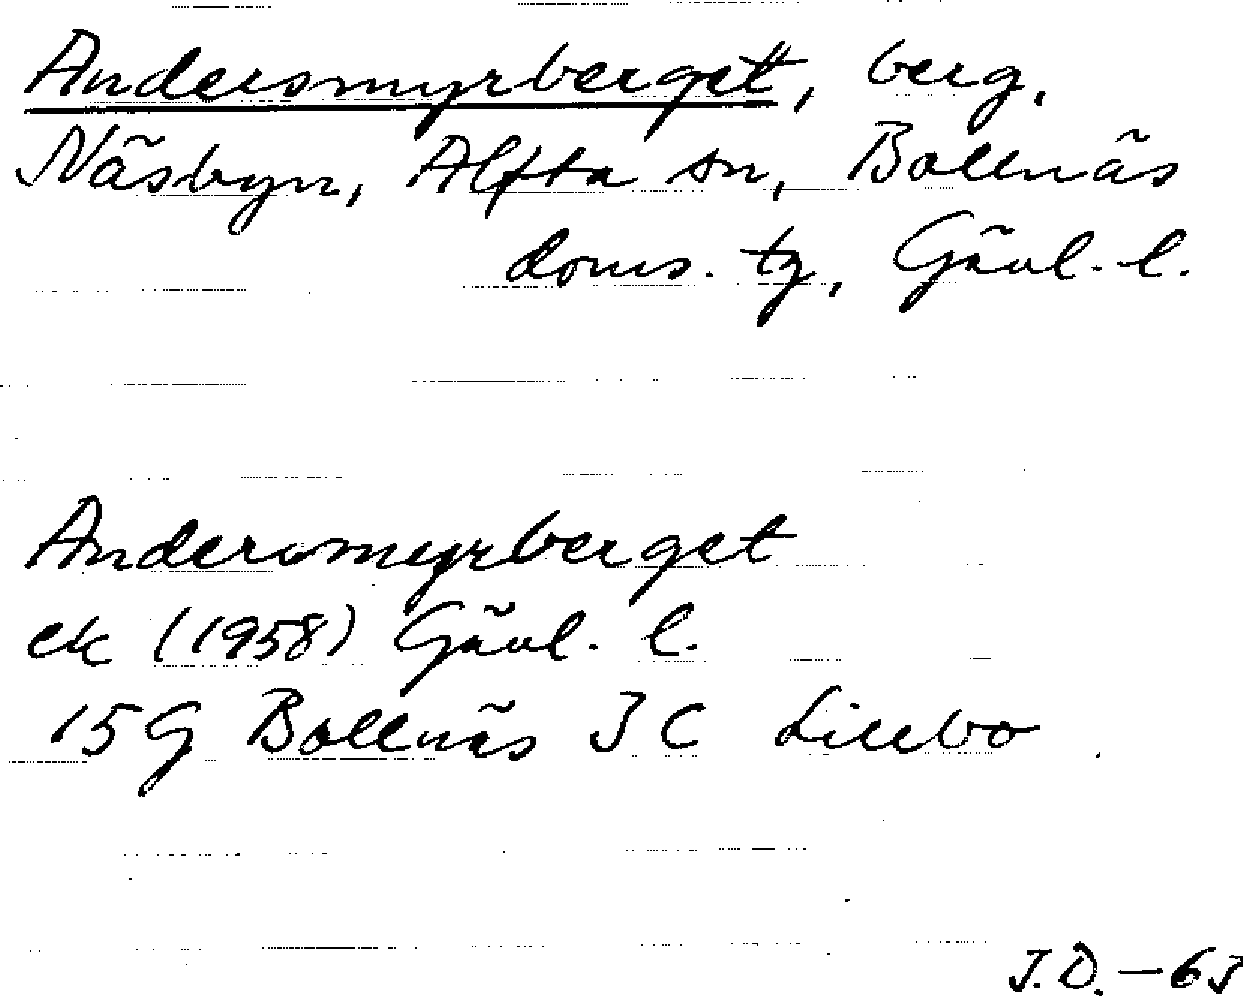 Andersmyrberget, berg,
Näsbyn, Alfta sn, Bollnäs
doms. tg, Gävl. l.
Andersmyrberget
ek (1958) Gävl. l.
15G Bollnäs J C Lillbo
J.D. - 63